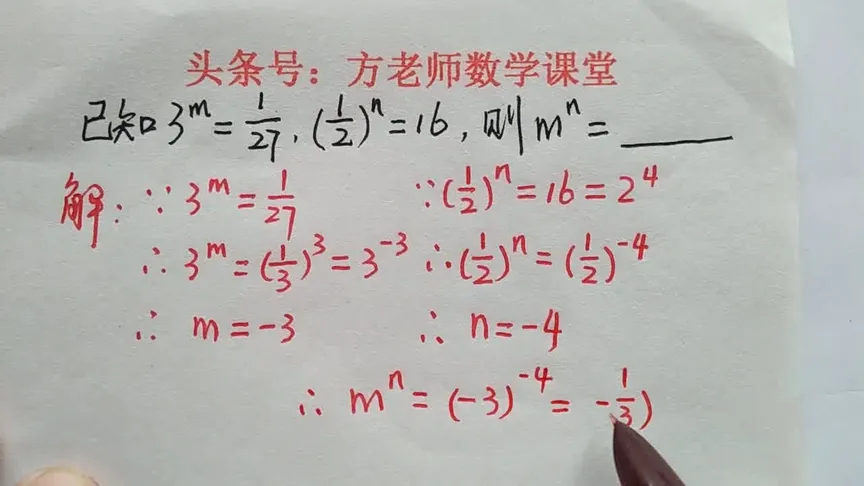 头条号：方老师数学课堂
已知 3^m = 1/27, (1/2)^n = 16, 则 m^n = ______
解: ∵ 3^m = 1/27 ∵ (1/2)^n = 16 = 2^4
∴ 3^m = (1/3)^3 = 3^-3 ∴ (1/2)^n = (1/2)^-4
∴ m = -3 ∴ n = -4
∴ m^n = (-3)^-4 = -1/3)